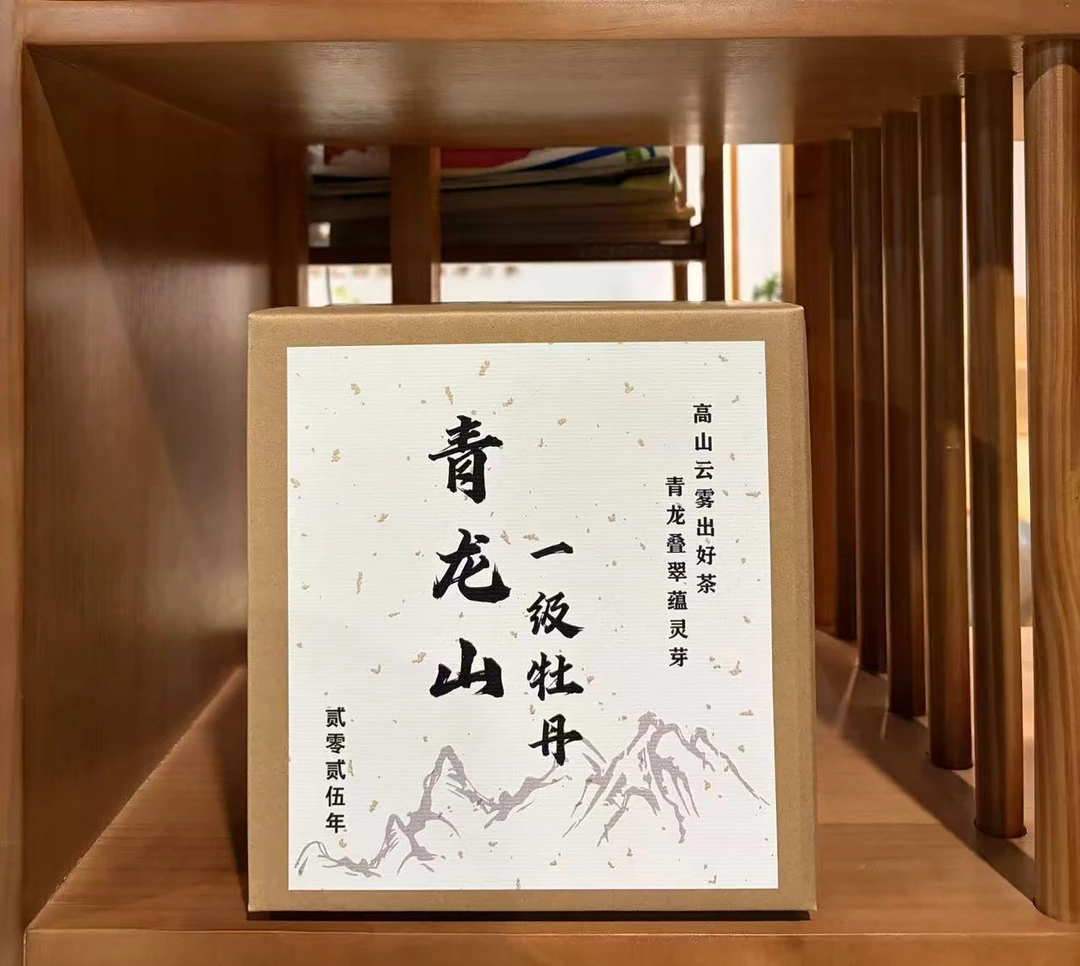 高山云雾出好茶
青龙叠翠蕴灵芽
一级牡丹
青龙山
贰零贰伍年